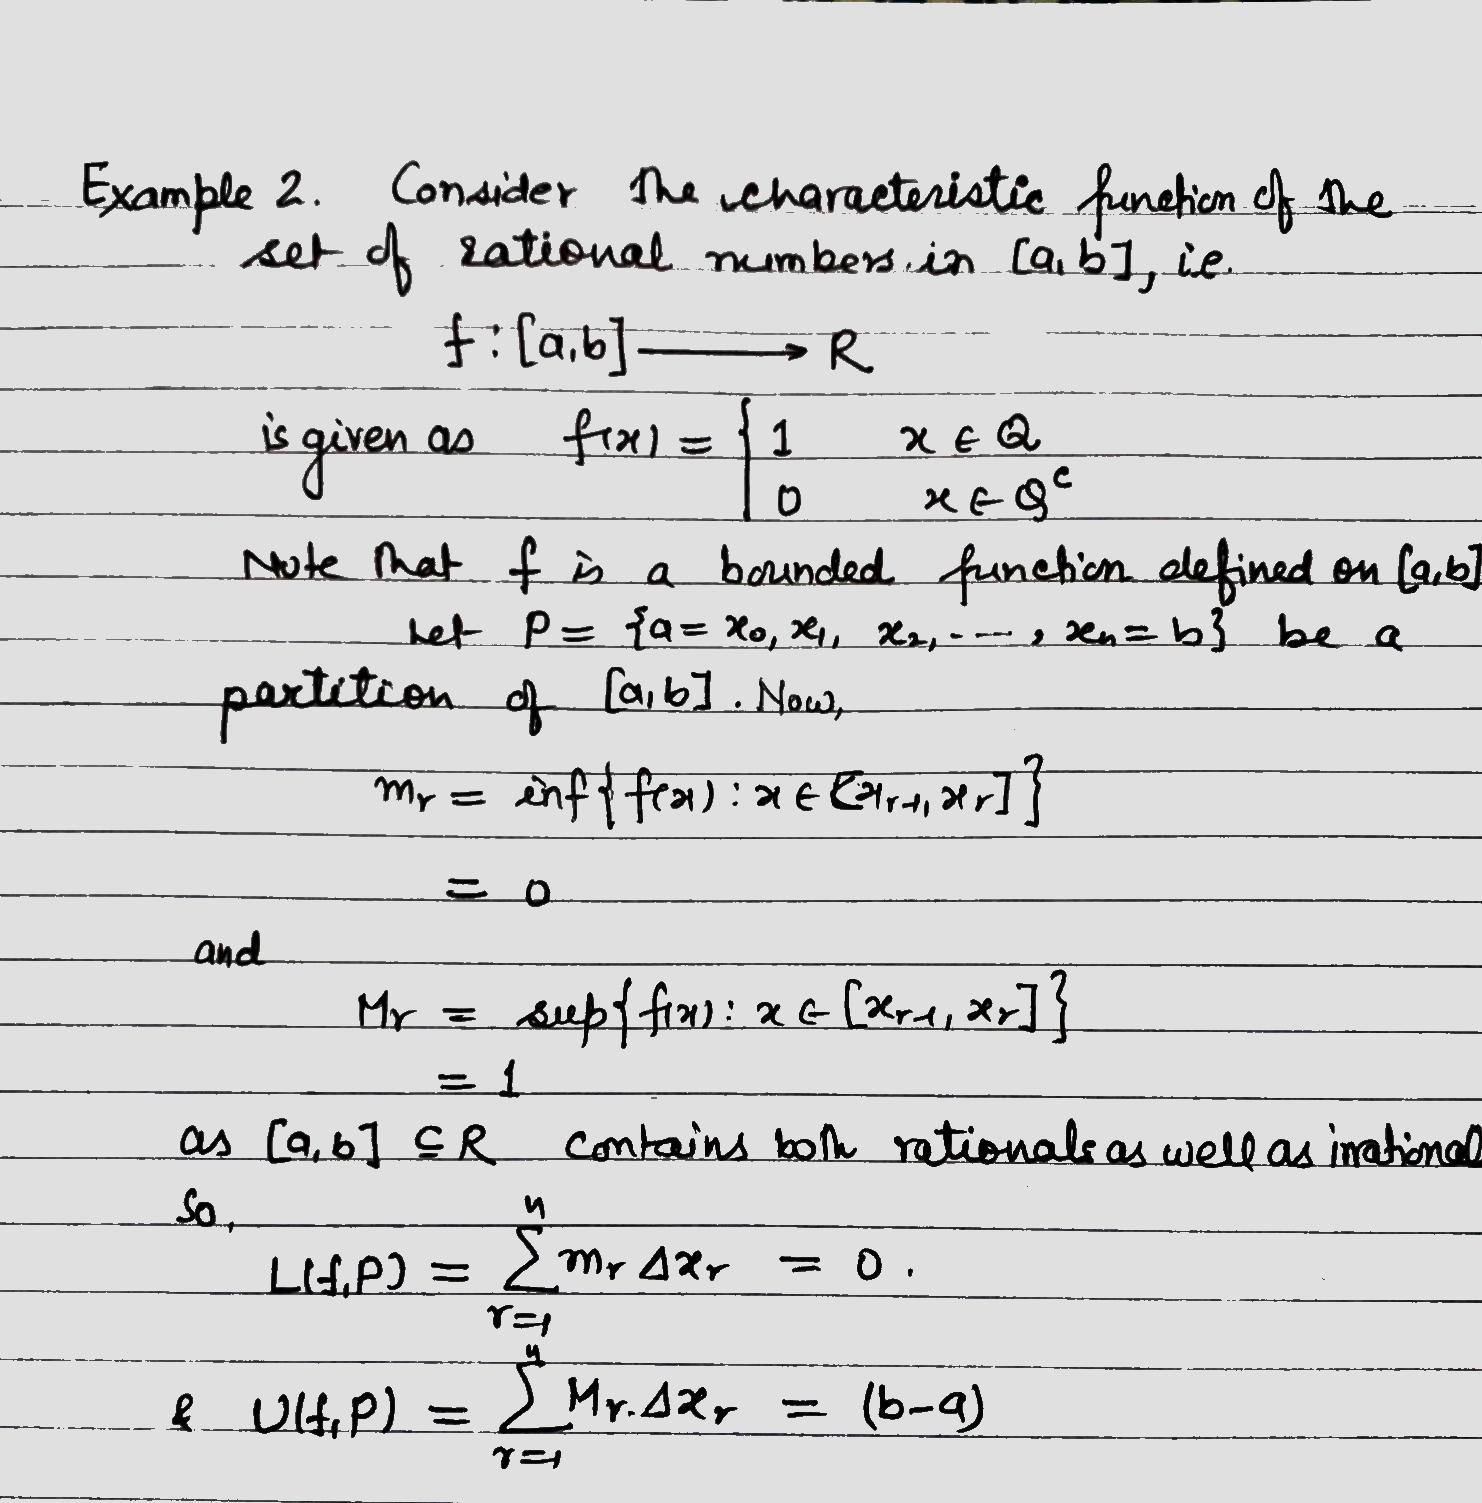 Example 2. Consider the characteristic function of the
set of rational numbers in [a,b], i.e.
f : [a,b] ⟶ R
is given as f(x) = { 1 x ∈ Q
0 x ∈ Q^c
Note that f is a bounded function defined on [a,b]
Let P = {a = x₀, x₁, x₂, ----, xₙ = b} be a
partition of [a,b]. Now,
mᵣ = inf{f(x) : x ∈ [xᵣ₋₁, xᵣ]}
= 0
and
Mᵣ = sup{f(x) : x ∈ [xᵣ₋₁, xᵣ]}
= 1
as [a,b] ⊆ R contains both rationals as well as irrational
So,
L(f,P) = ∑_{r=1}^{n} mᵣ Δxᵣ = 0.
& U(f,P) = ∑_{r=1}^{n} Mᵣ.Δxᵣ = (b-a)